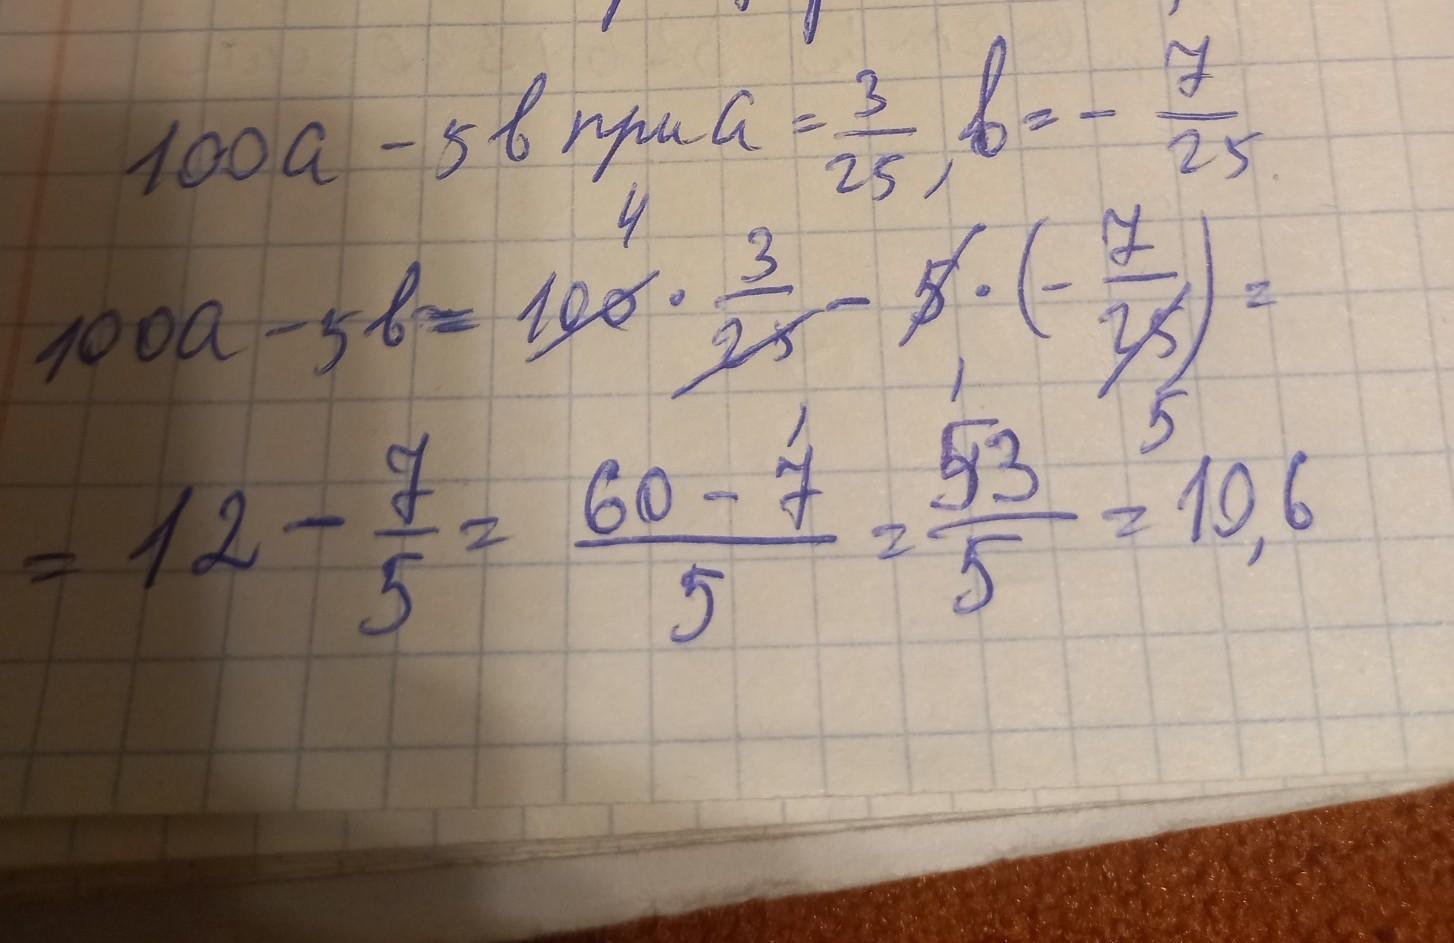 100a - 5b при a = 3/25, b = - 7/25
4
100a - 5b = 100 · 3/25 - 5 · (- 7/25) =
1 1 5
= 12 - 7/5 = 60 - 7/5 = 53/5 = 10,6